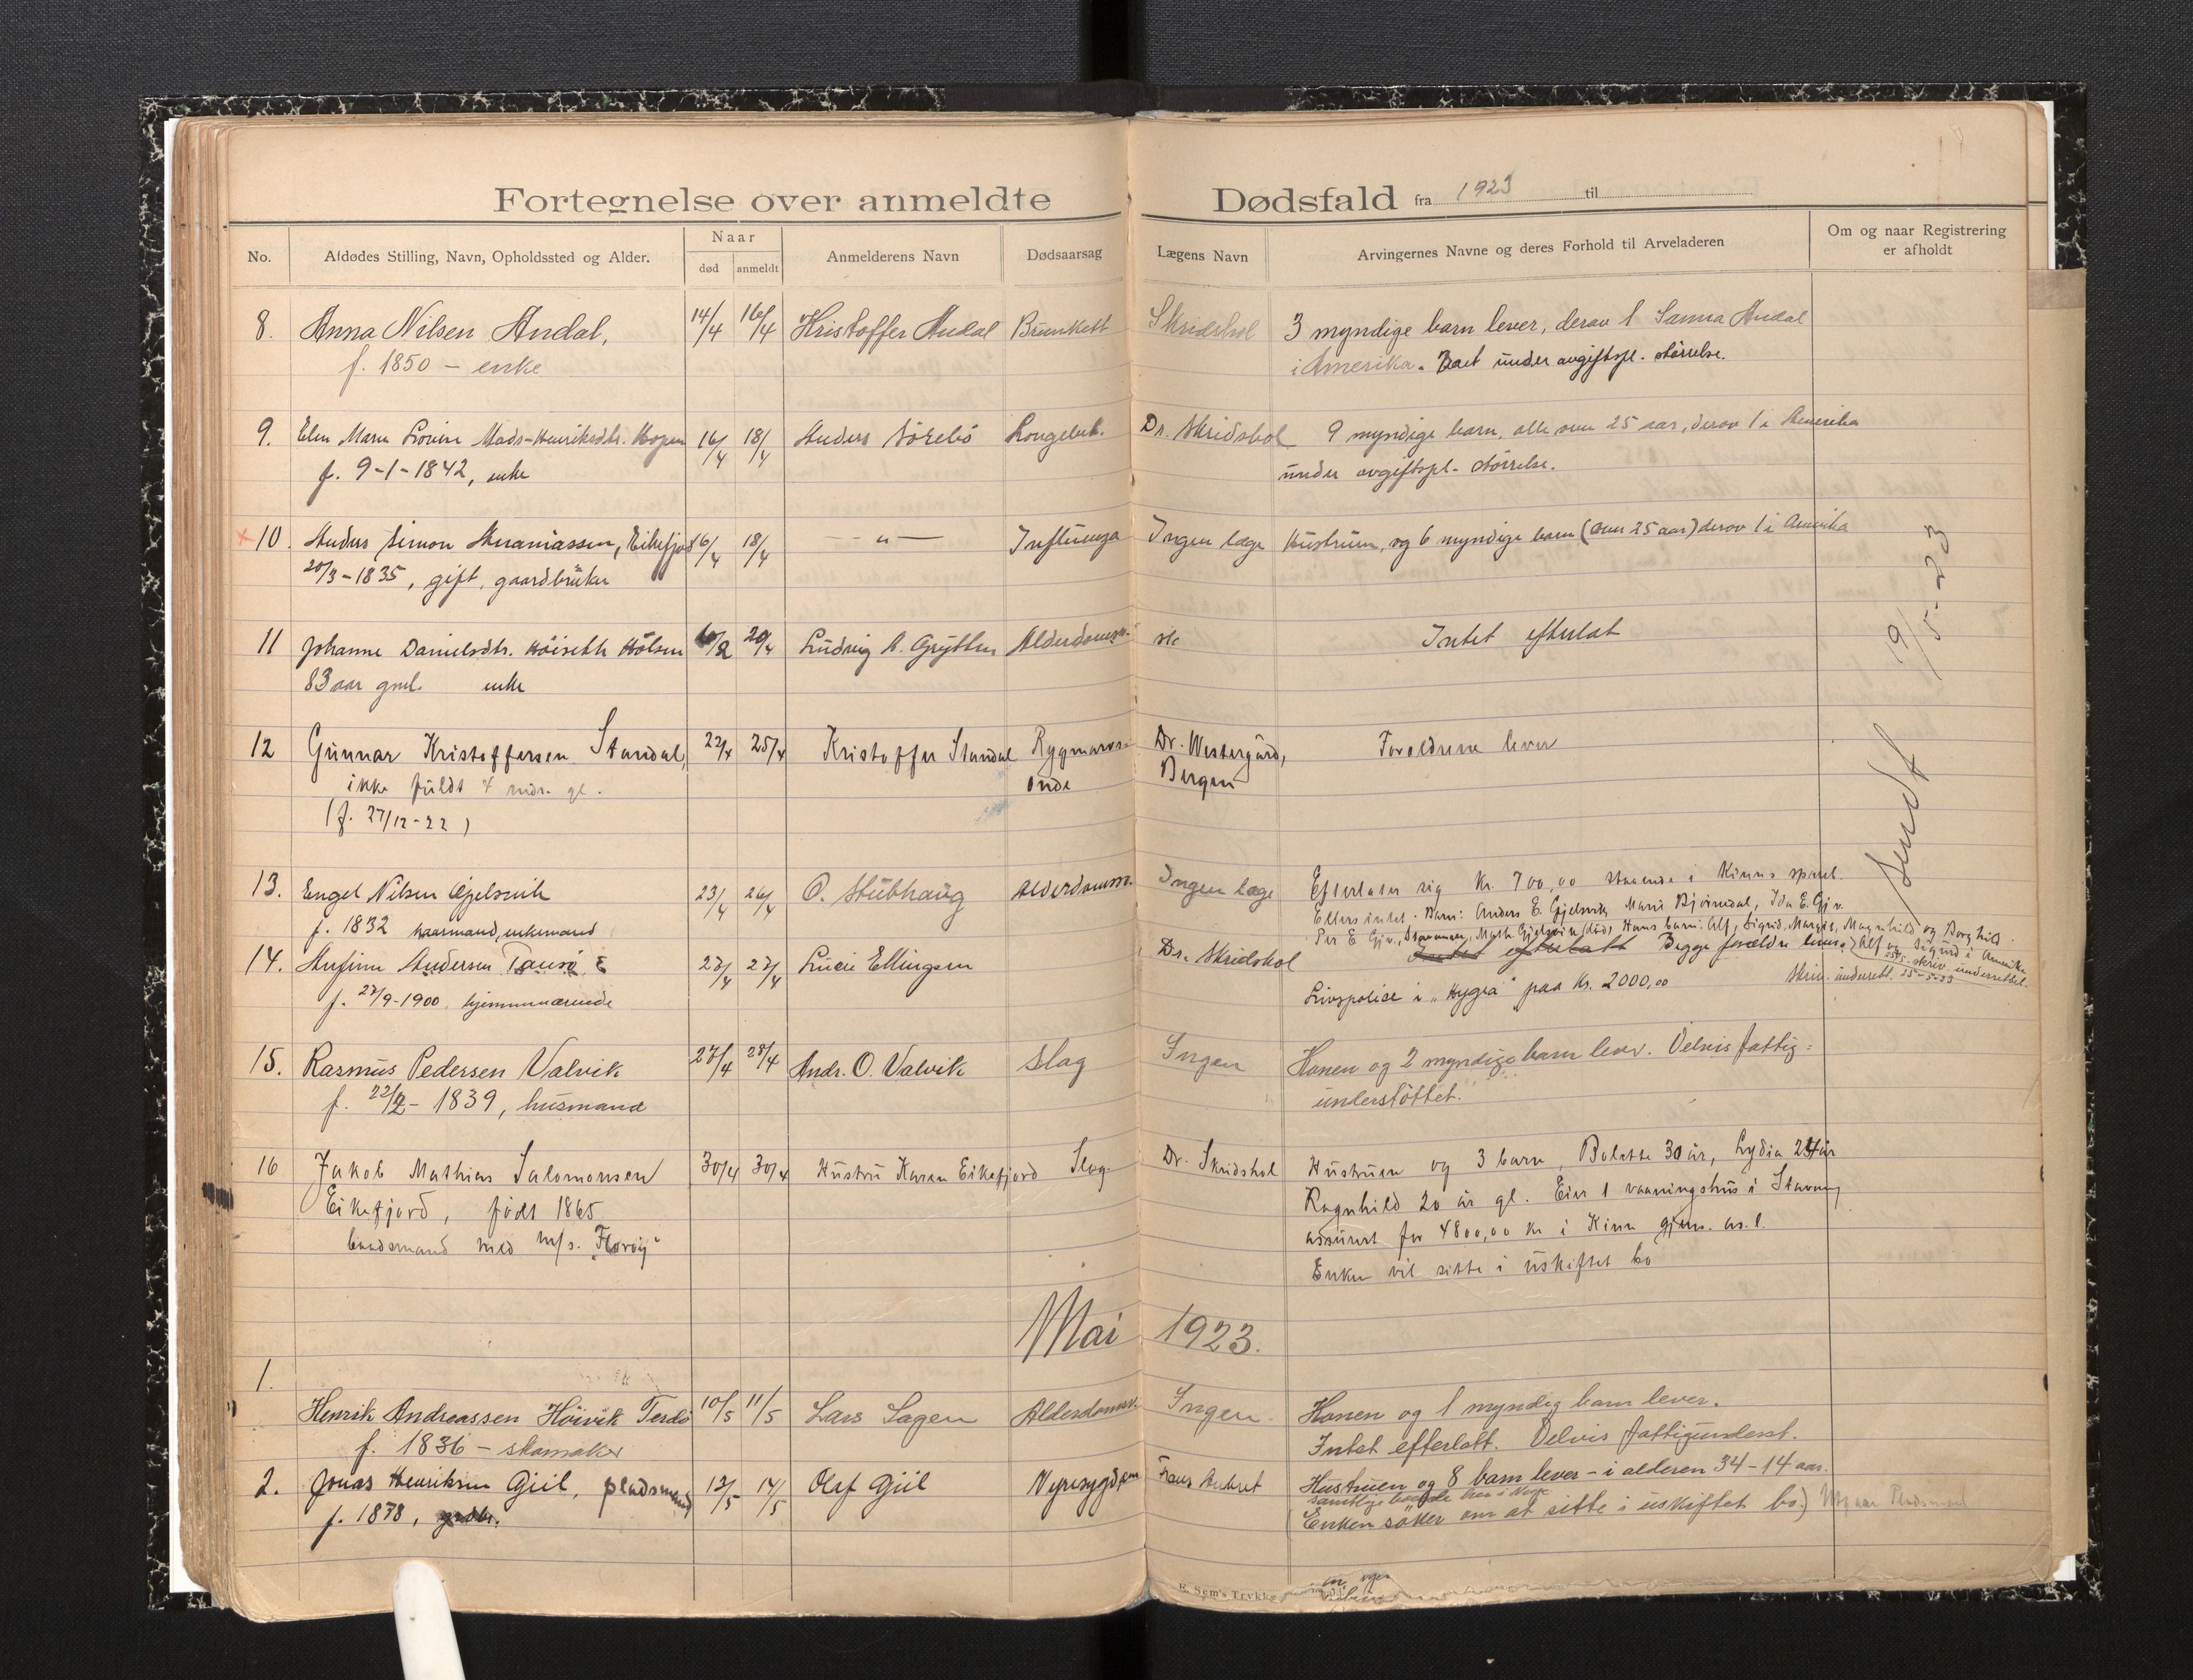 Fortegnelse over anmeldte Dødsfald fra 1923 til
No. Afdødes Stilling, Navn, Opholdssted og Alder. Naar død anmeldt Anmelderens Navn Dødsaarsag Lægens Navn Arvingernes Navne og deres Forhold til Arveladeren Om og naar Registrering er afholdt
8. Anna Nilsen Andal, 14/4 16/4 Kristoffer Andal Skridshol 3 myndige barn lever, derav 1 Sanna Andal
f. 1850 – enke i Amerika. Boet under avgiftspl. størrelse.
9. Mads-Henriksdtr. 16/4 18/4 Anders Dr. Skridshol 9 myndige barn, alle over 25 aar, derav 1 i Amerika
f. 9-1-1842, enke under avgiftspl. størrelse.
10. Anders Simon Eikefjord 16/4 18/4 — " — Influenza Ingen læge Hustruen, og 6 myndige barn (over 25 aar) derav 1 i Amerika
20/3-1835, gift, gaardbruker
11 Johanne Danielsdtr. 20/4 Ludvig A. Grytten Alderdomssv. Intet efterlat
83 aar gml. enke
19/5-23
12 Gunnar Kristoffersen Standal, 22/4 25/4 Kristoffer Standal Rygmarvs- Dr. Westergård, Foreldrene lever
ikke fuldt 4 mdr. gl. onde Bergen
(f. 27/12-22)
Sendt
13. Engel Nilsen Gjelsvik 23/4 26/4 O. Stubhaug Alderdomssv. Ingen læge Efterlater sig kr. 700,00 staaende i Kinns spareb.
f. 1832 kaarmand, enkemand Ellers intet. Barn: Anders E. Gjelsvik, Marie Bjørndal, Ida E. Gjv.
Per E. Gjv., Stavanger, Math. Gjelsvik (død) Hans barn: Alf, Sigrid, Margit, Magnhild og Borghild
14. Andersen Tansø 23/4 27/4 Lucie Ellingsen Dr. Skridshol Intet efterlatt Begge forældre lever (Alf og Sigurd i Amerika
f. 27/9-1900, hjemmeværende Livspolise i "Hygea" paa kr. 2000,00 Skriv. underrett. 25-5-23
15. Rasmus Pedersen Valvik 27/4 28/4 Andr. O. Valvik Slag Ingen Konen og 2 myndige barn lever. Delvis fattig-
f. 22/2-1839, husmand understøttet.
16 Jakob Mathias Salomonsen 30/4 30/4 Hustru Karen Eikefjord Slag. Dr. Skridshol Hustruen og 3 barn, Bolette 30 år, Lydia 24 år
Eikefjord, født 1865 Ragnhild 20 år gl. Eier 1 vaaningshus i Stavang
baadsmand med m/s. "Florøy" assurert for 4800,00 kr i Kinn gjens. as. l.
Enken vil sitte i uskiftet bo
Mai 1923.
1.
Henrik Andreassen Høivik Terdø 10/5 11/5 Lars Sagen Alderdomssv. Ingen Konen og 1 myndig barn lever.
f. 1836 – skomaker Intet efterlatt. Delvis fattigunderst.
2. Jonas Henriksen Giil, pladsmand 12/5 14/5 Olaf Giil Nyresygdom Hustruen og 8 barn lever – i alderen 34-14 aar.
f. 1878, (Enken søker om at sitte i uskiftet bo.)
E. Sem's Trykkeri